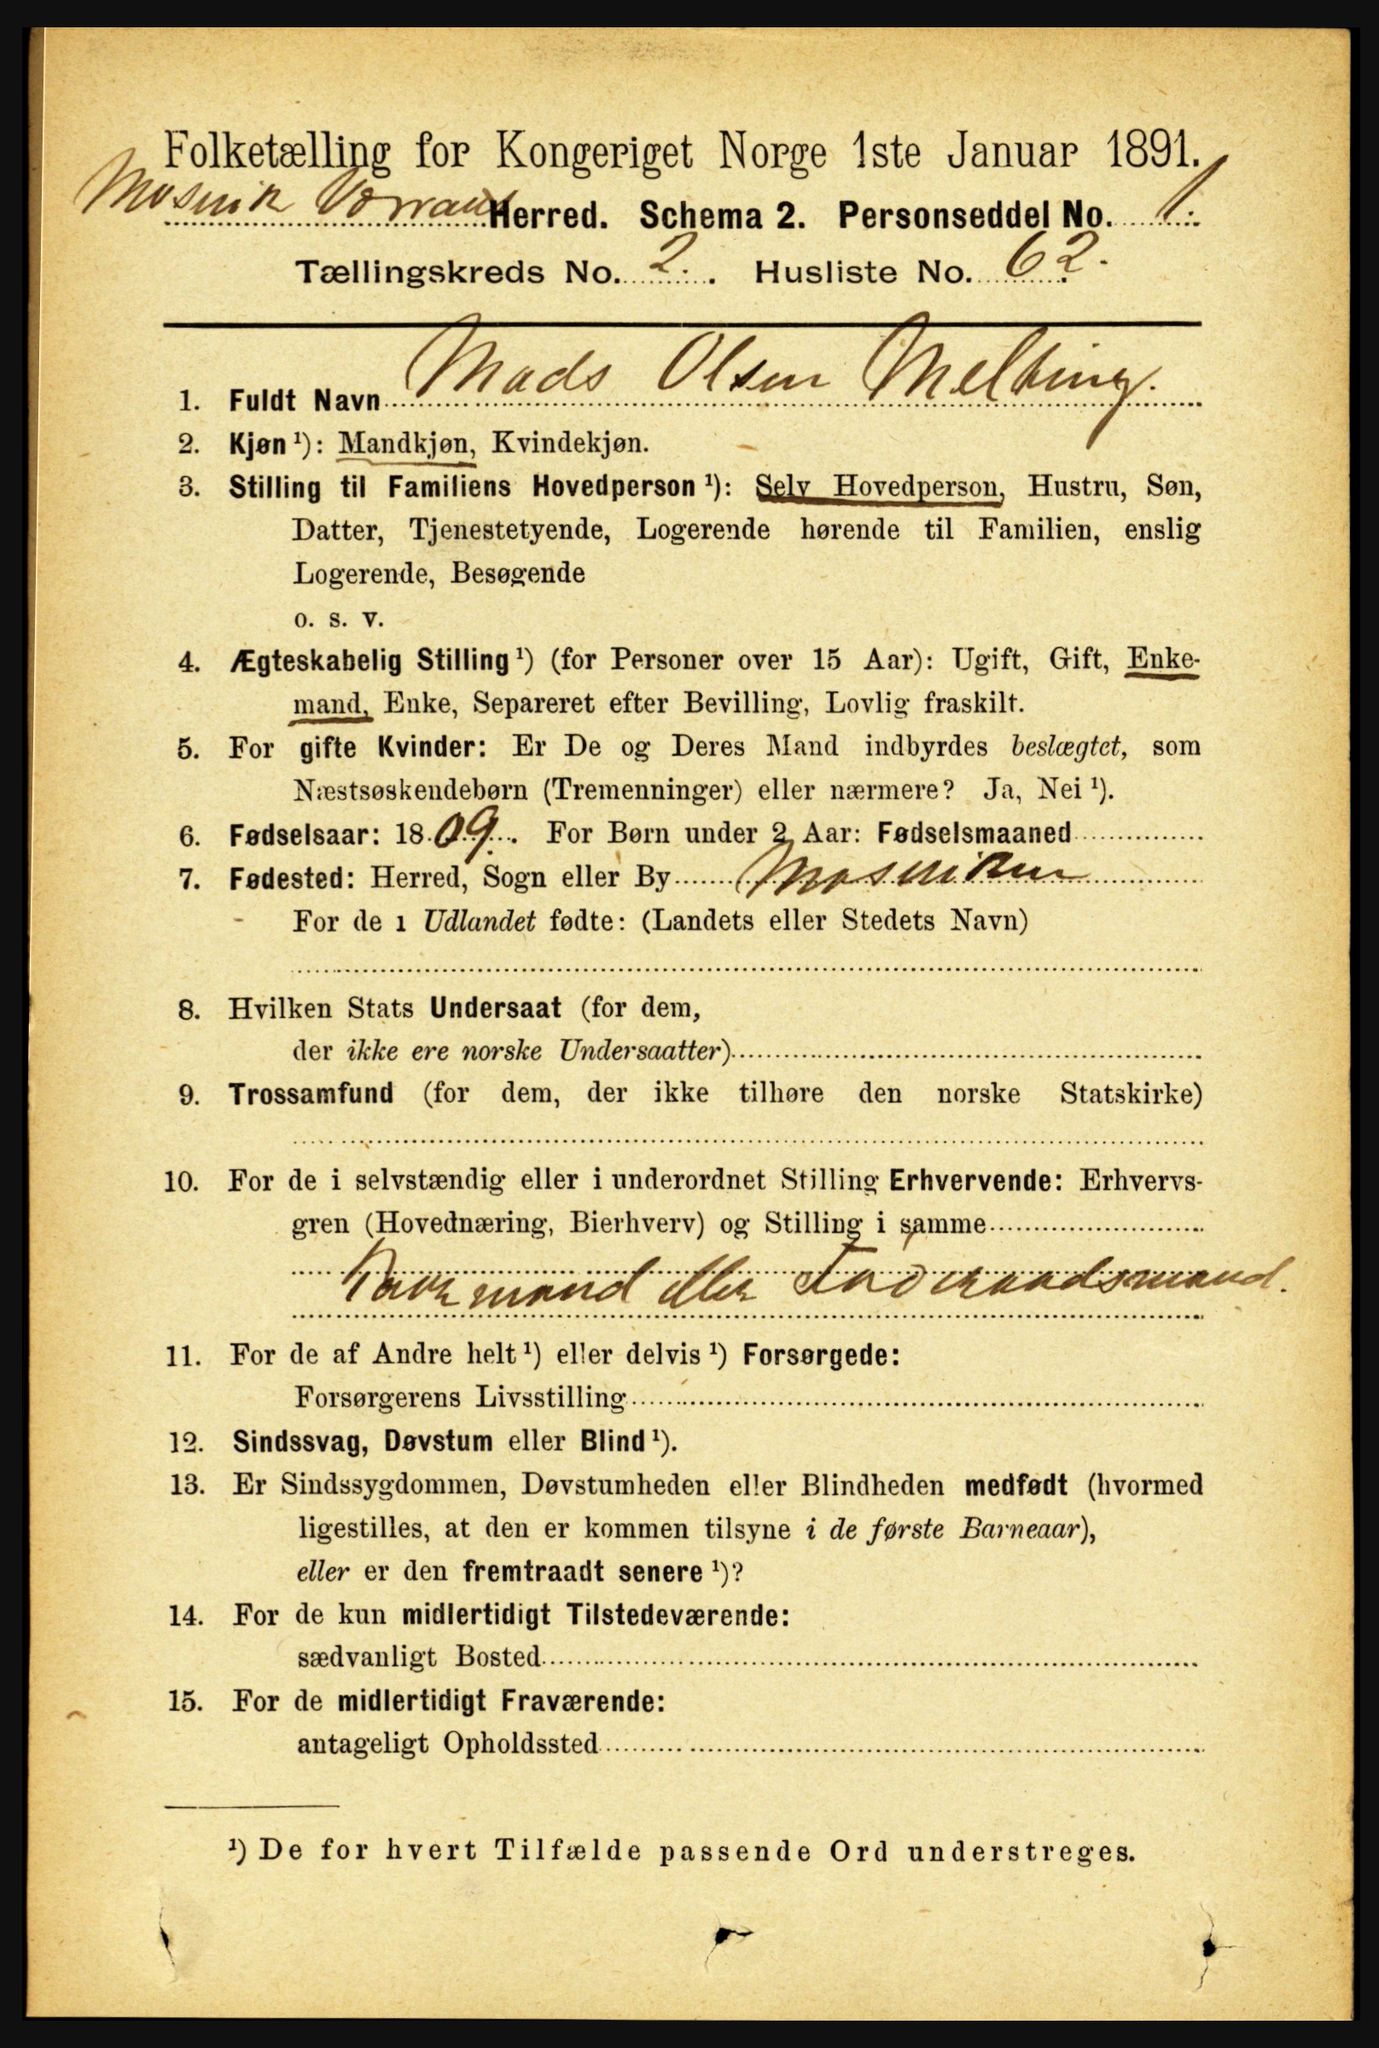 Folketælling for Kongeriget Norge 1ste Januar 1891.
Mosvik Verran Herred. Schema 2. Personseddel No. 1.
Tællingskreds No. 2. Husliste No. 62.
1. Fuldt Navn Mads Olsen Melting.
2. Kjøn ¹): Mandkjøn, Kvindekjøn.
3. Stilling til Familiens Hovedperson ¹): Selv Hovedperson, Hustru, Søn,
Datter, Tjenestetyende, Logerende hørende til Familien, enslig
Logerende, Besøgende
o. s. v.
4. Ægteskabelig Stilling ¹) (for Personer over 15 Aar): Ugift, Gift, Enke-
mand, Enke, Separeret efter Bevilling, Lovlig fraskilt.
5. For gifte Kvinder: Er De og Deres Mand indbyrdes beslægtet, som
Næstsøskendebørn (Tremenninger) eller nærmere? Ja, Nei ¹).
6. Fødselsaar: 1809. For Børn under 2 Aar: Fødselsmaaned
7. Fødested: Herred, Sogn eller By Mosviken
For de i Udlandet fødte: (Landets eller Stedets Navn)
8. Hvilken Stats Undersaat (for dem,
der ikke ere norske Undersaatter)
9. Trossamfund (for dem, der ikke tilhøre den norske Statskirke)
10. For de i selvstændig eller i underordnet Stilling Erhvervende: Erhvervs-
gren (Hovednæring, Bierhverv) og Stilling i samme
Kaarmand eller Føderaadsmand.
11. For de af Andre helt ¹) eller delvis ¹) Forsørgede:
Forsørgerens Livsstilling
12. Sindssvag, Døvstum eller Blind ¹).
13. Er Sindssygdommen, Døvstumheden eller Blindheden medfødt (hvormed
ligestilles, at den er kommen tilsyne i de første Barneaar),
eller er den fremtraadt senere ¹)?
14. For de kun midlertidigt Tilstedeværende:
sædvanligt Bosted
15. For de midlertidigt Fraværende:
antageligt Opholdssted
¹) De for hvert Tilfælde passende Ord understreges.